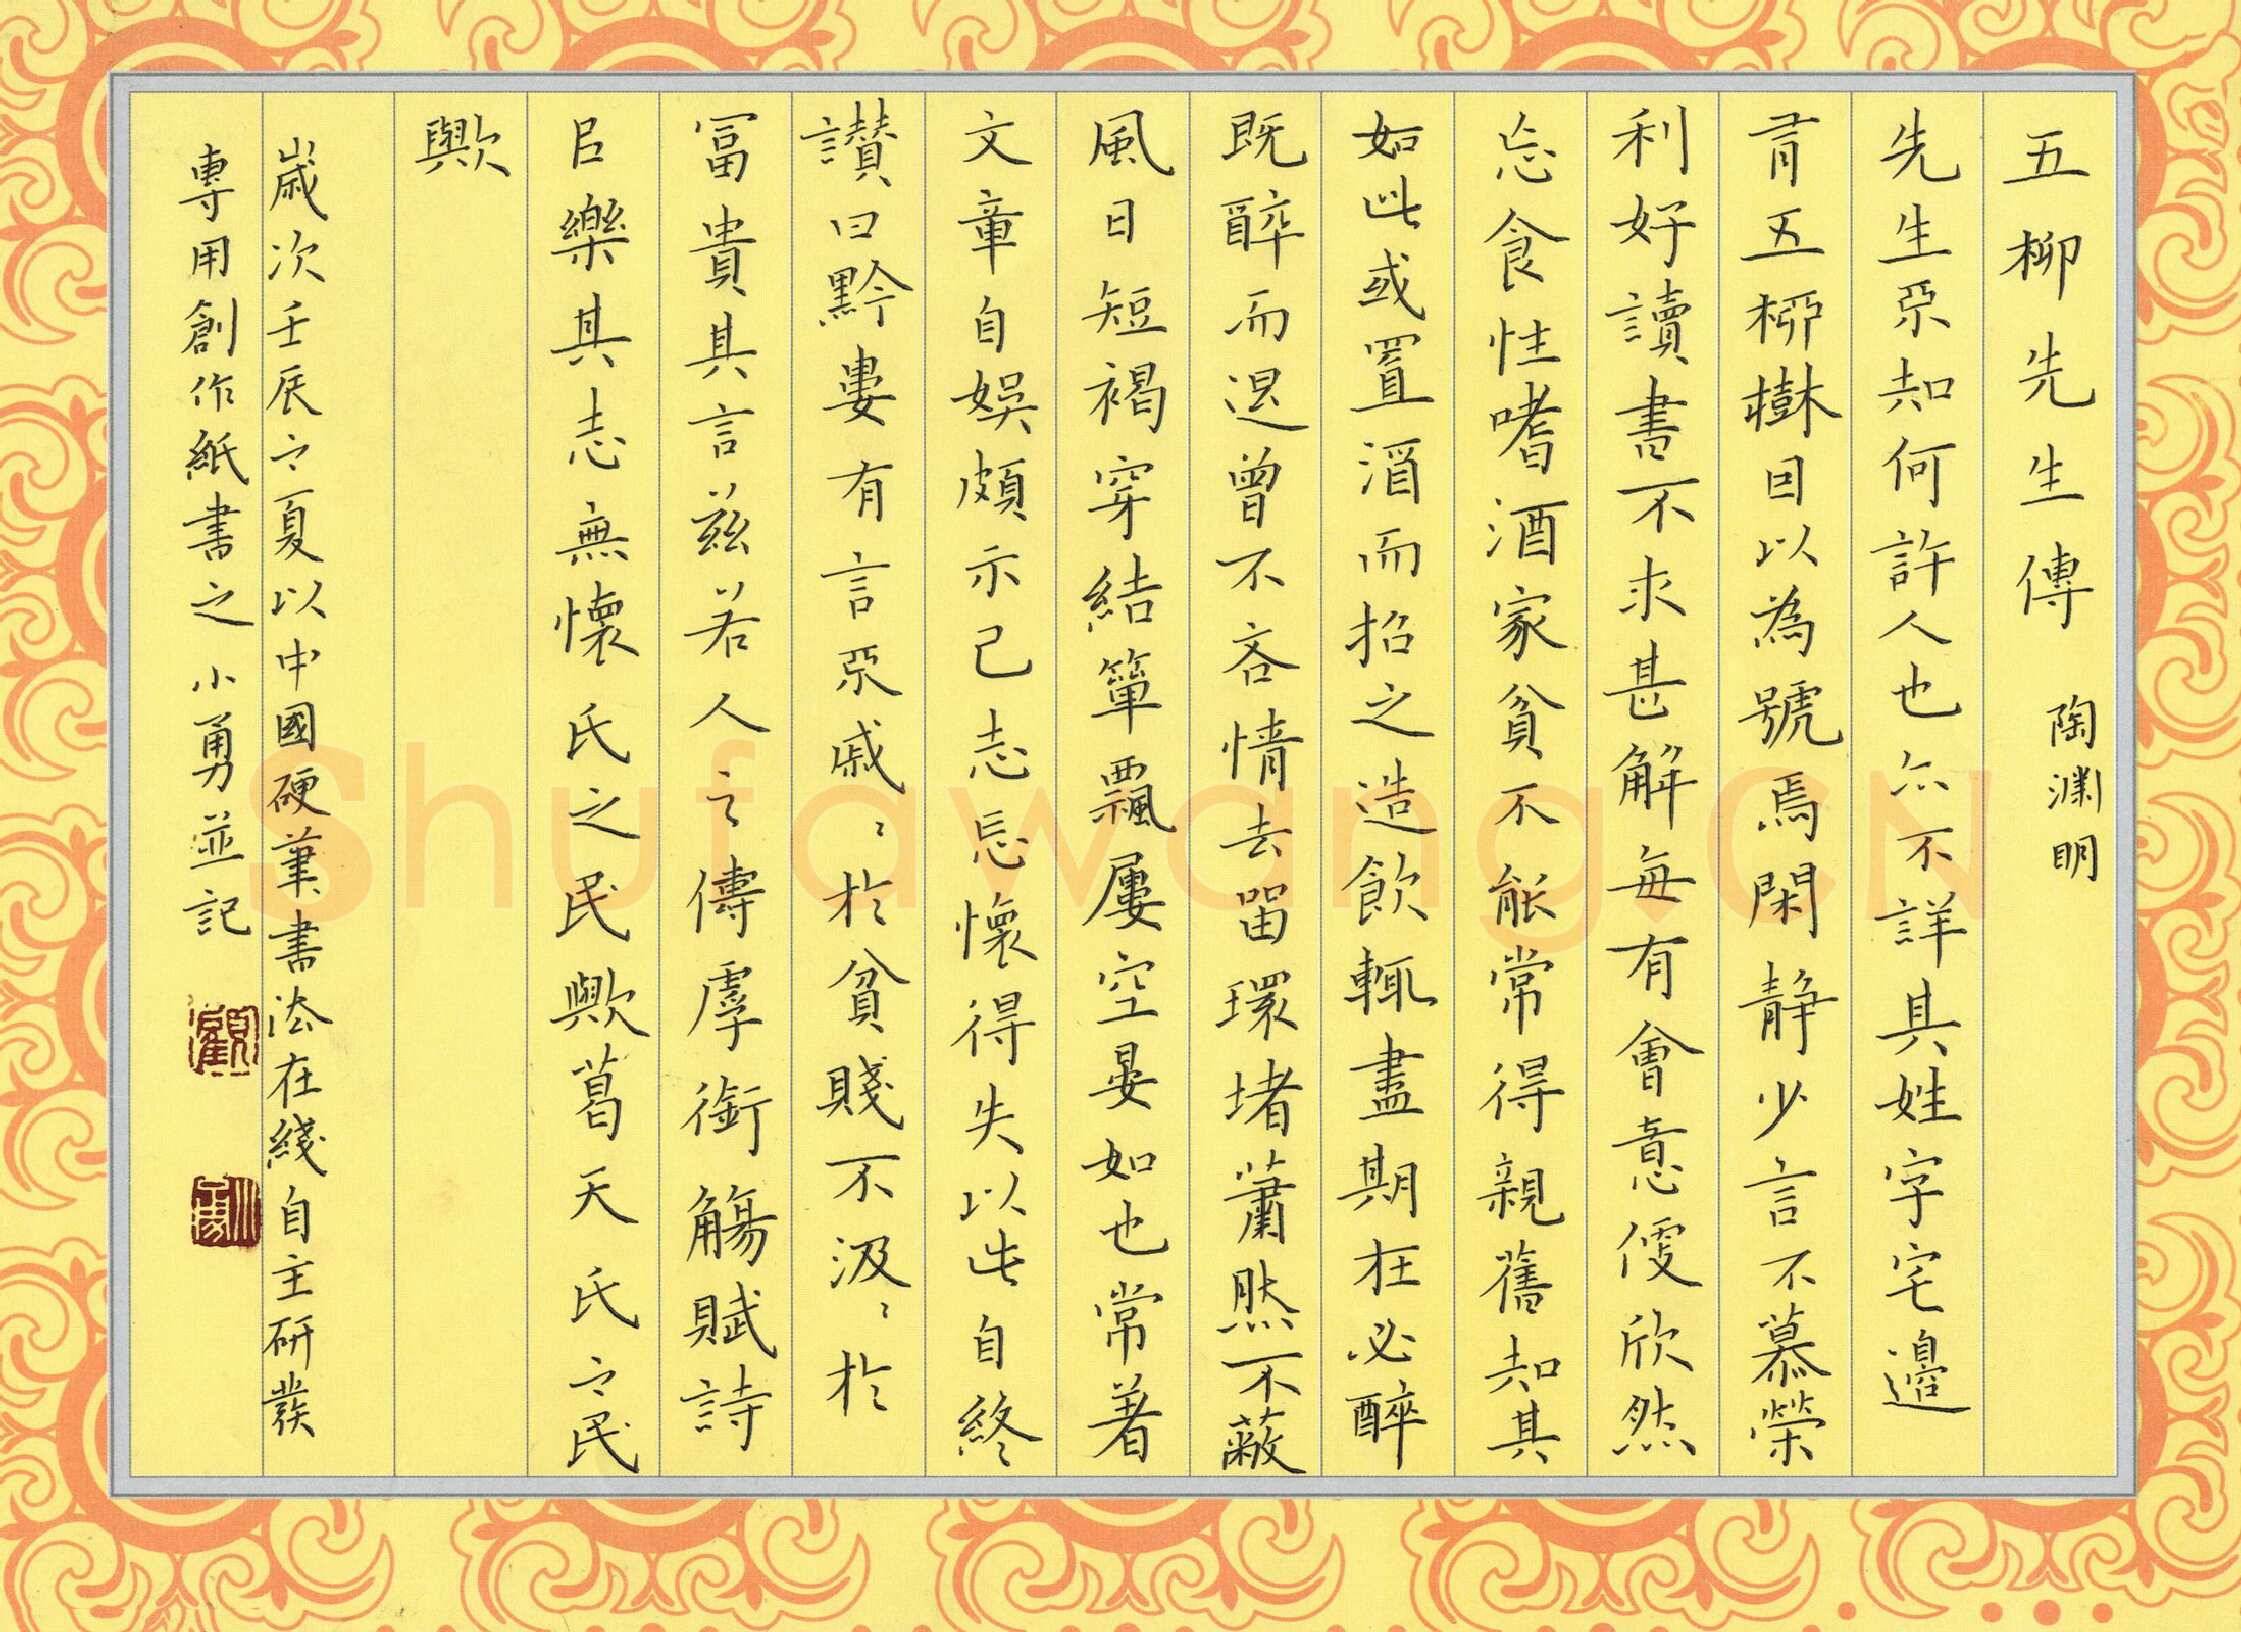 五柳先生傳 陶淵明
先生不知何許人也亦不詳其姓字宅邊
有五柳樹因以為號焉閑静少言不慕榮
利好讀書不求甚解每有會意便欣然
忘食性嗜酒家貧不能常得親舊知其
如此或置酒而招之造飲輒盡期在必醉
既醉而退曾不吝情去留環堵蕭然不蔽
風日短褐穿結簞瓢屢空晏如也常著
文章自娛頗示己志忘懷得失以此自終
讚曰黔婁有言不戚〻於貧賤不汲〻於
富貴其言茲若人之儔乎銜觴賦詩
以樂其志無懷氏之民歟葛天氏之民
歟
歲次壬辰之夏以中國硬筆書法在綫自主研發
專用創作紙書之 小勇並記
Shufawang.CN